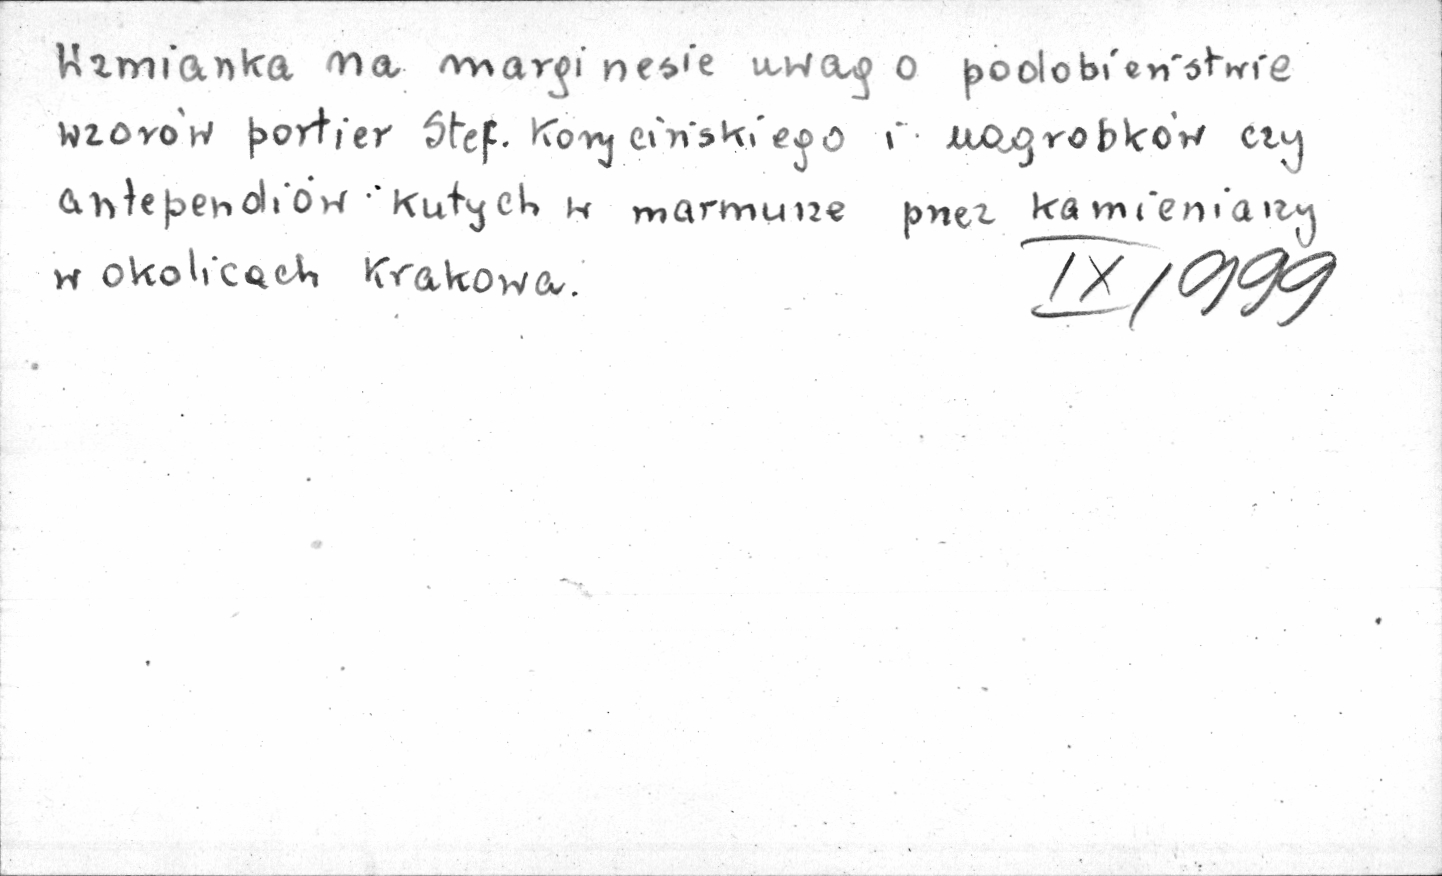 Wzmianka na marginesie uwag o podobieństwie
wzorów portier Stef. Korycińskiego i nagrobków czy
antependiów kutych w marmurze przez kamieniarzy
w okolicach Krakowa.
IX/999